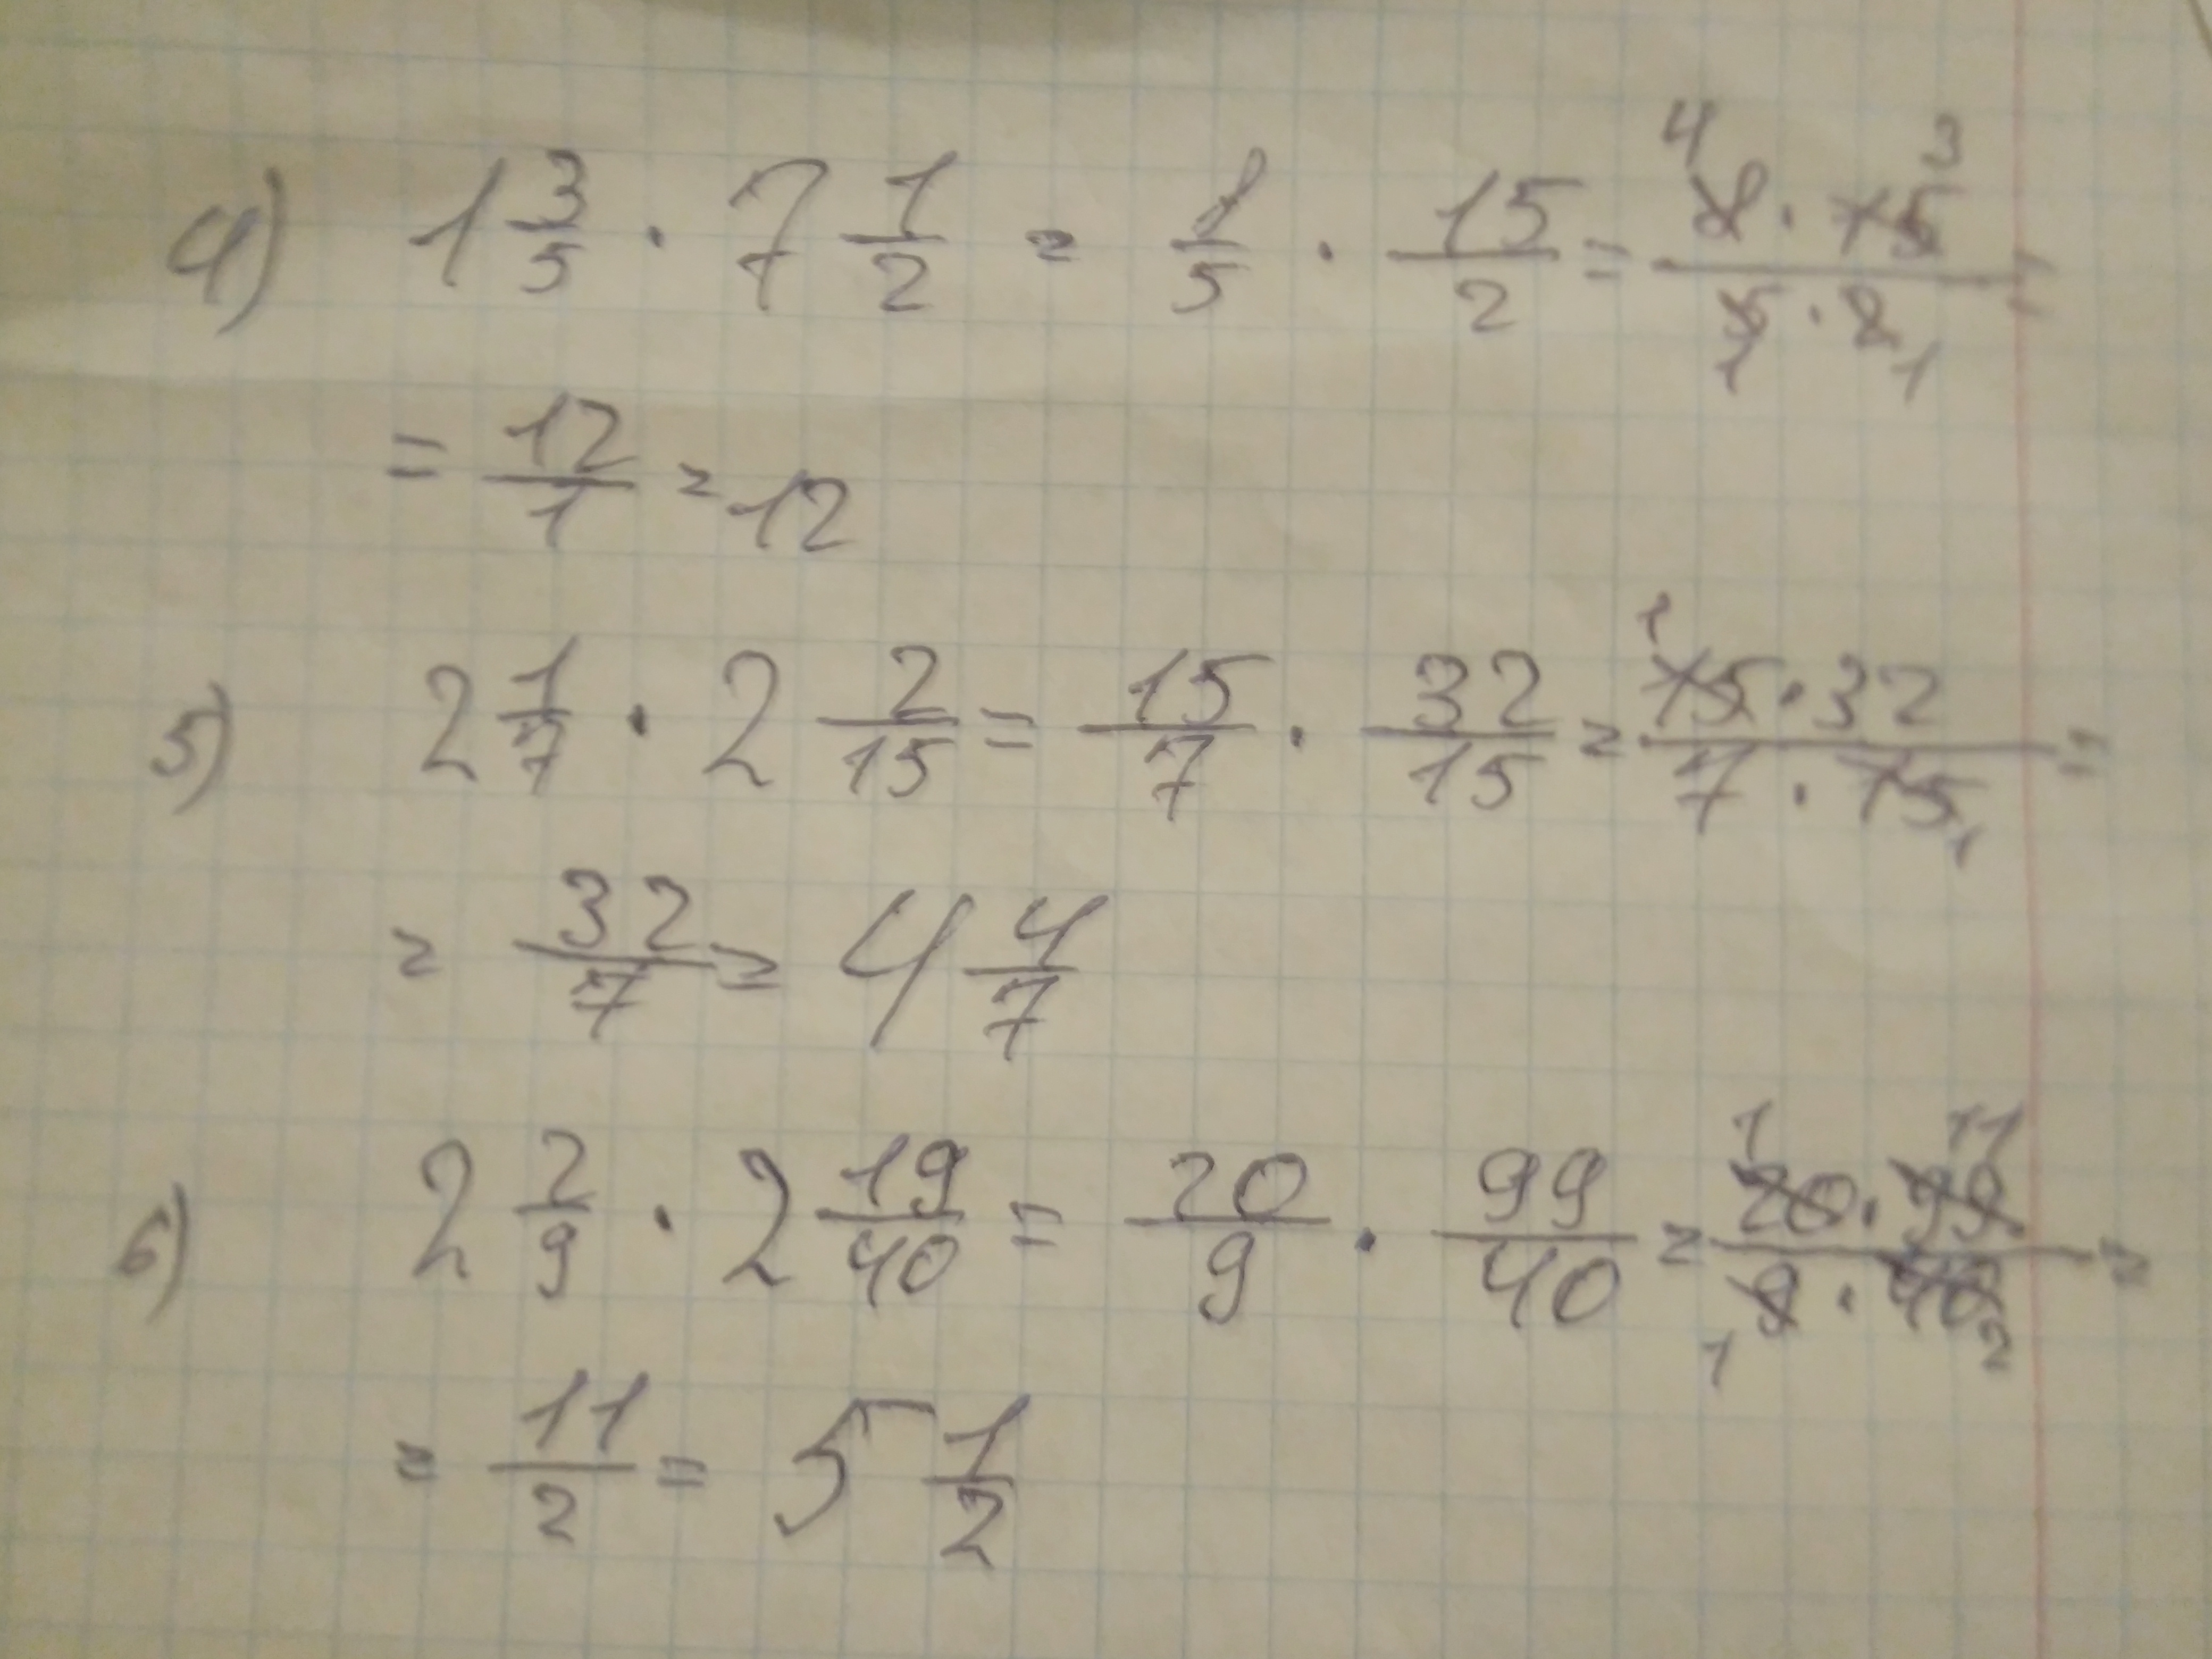 4) 1 3/5 · 7 1/2 = 8/5 · 15/2 = 4 8 · 15 3 / 5 1 · 2 1 =
= 12/1 = 12
5) 2 1/7 · 2 2/15 = 15/7 · 32/15 = 1 15 · 32 / 7 · 15 1 =
= 32/7 = 4 4/7
6) 2 2/9 · 2 19/40 = 20/9 · 99/40 = 1 20 · 99 11 / 1 9 · 40 2 =
= 11/2 = 5 1/2